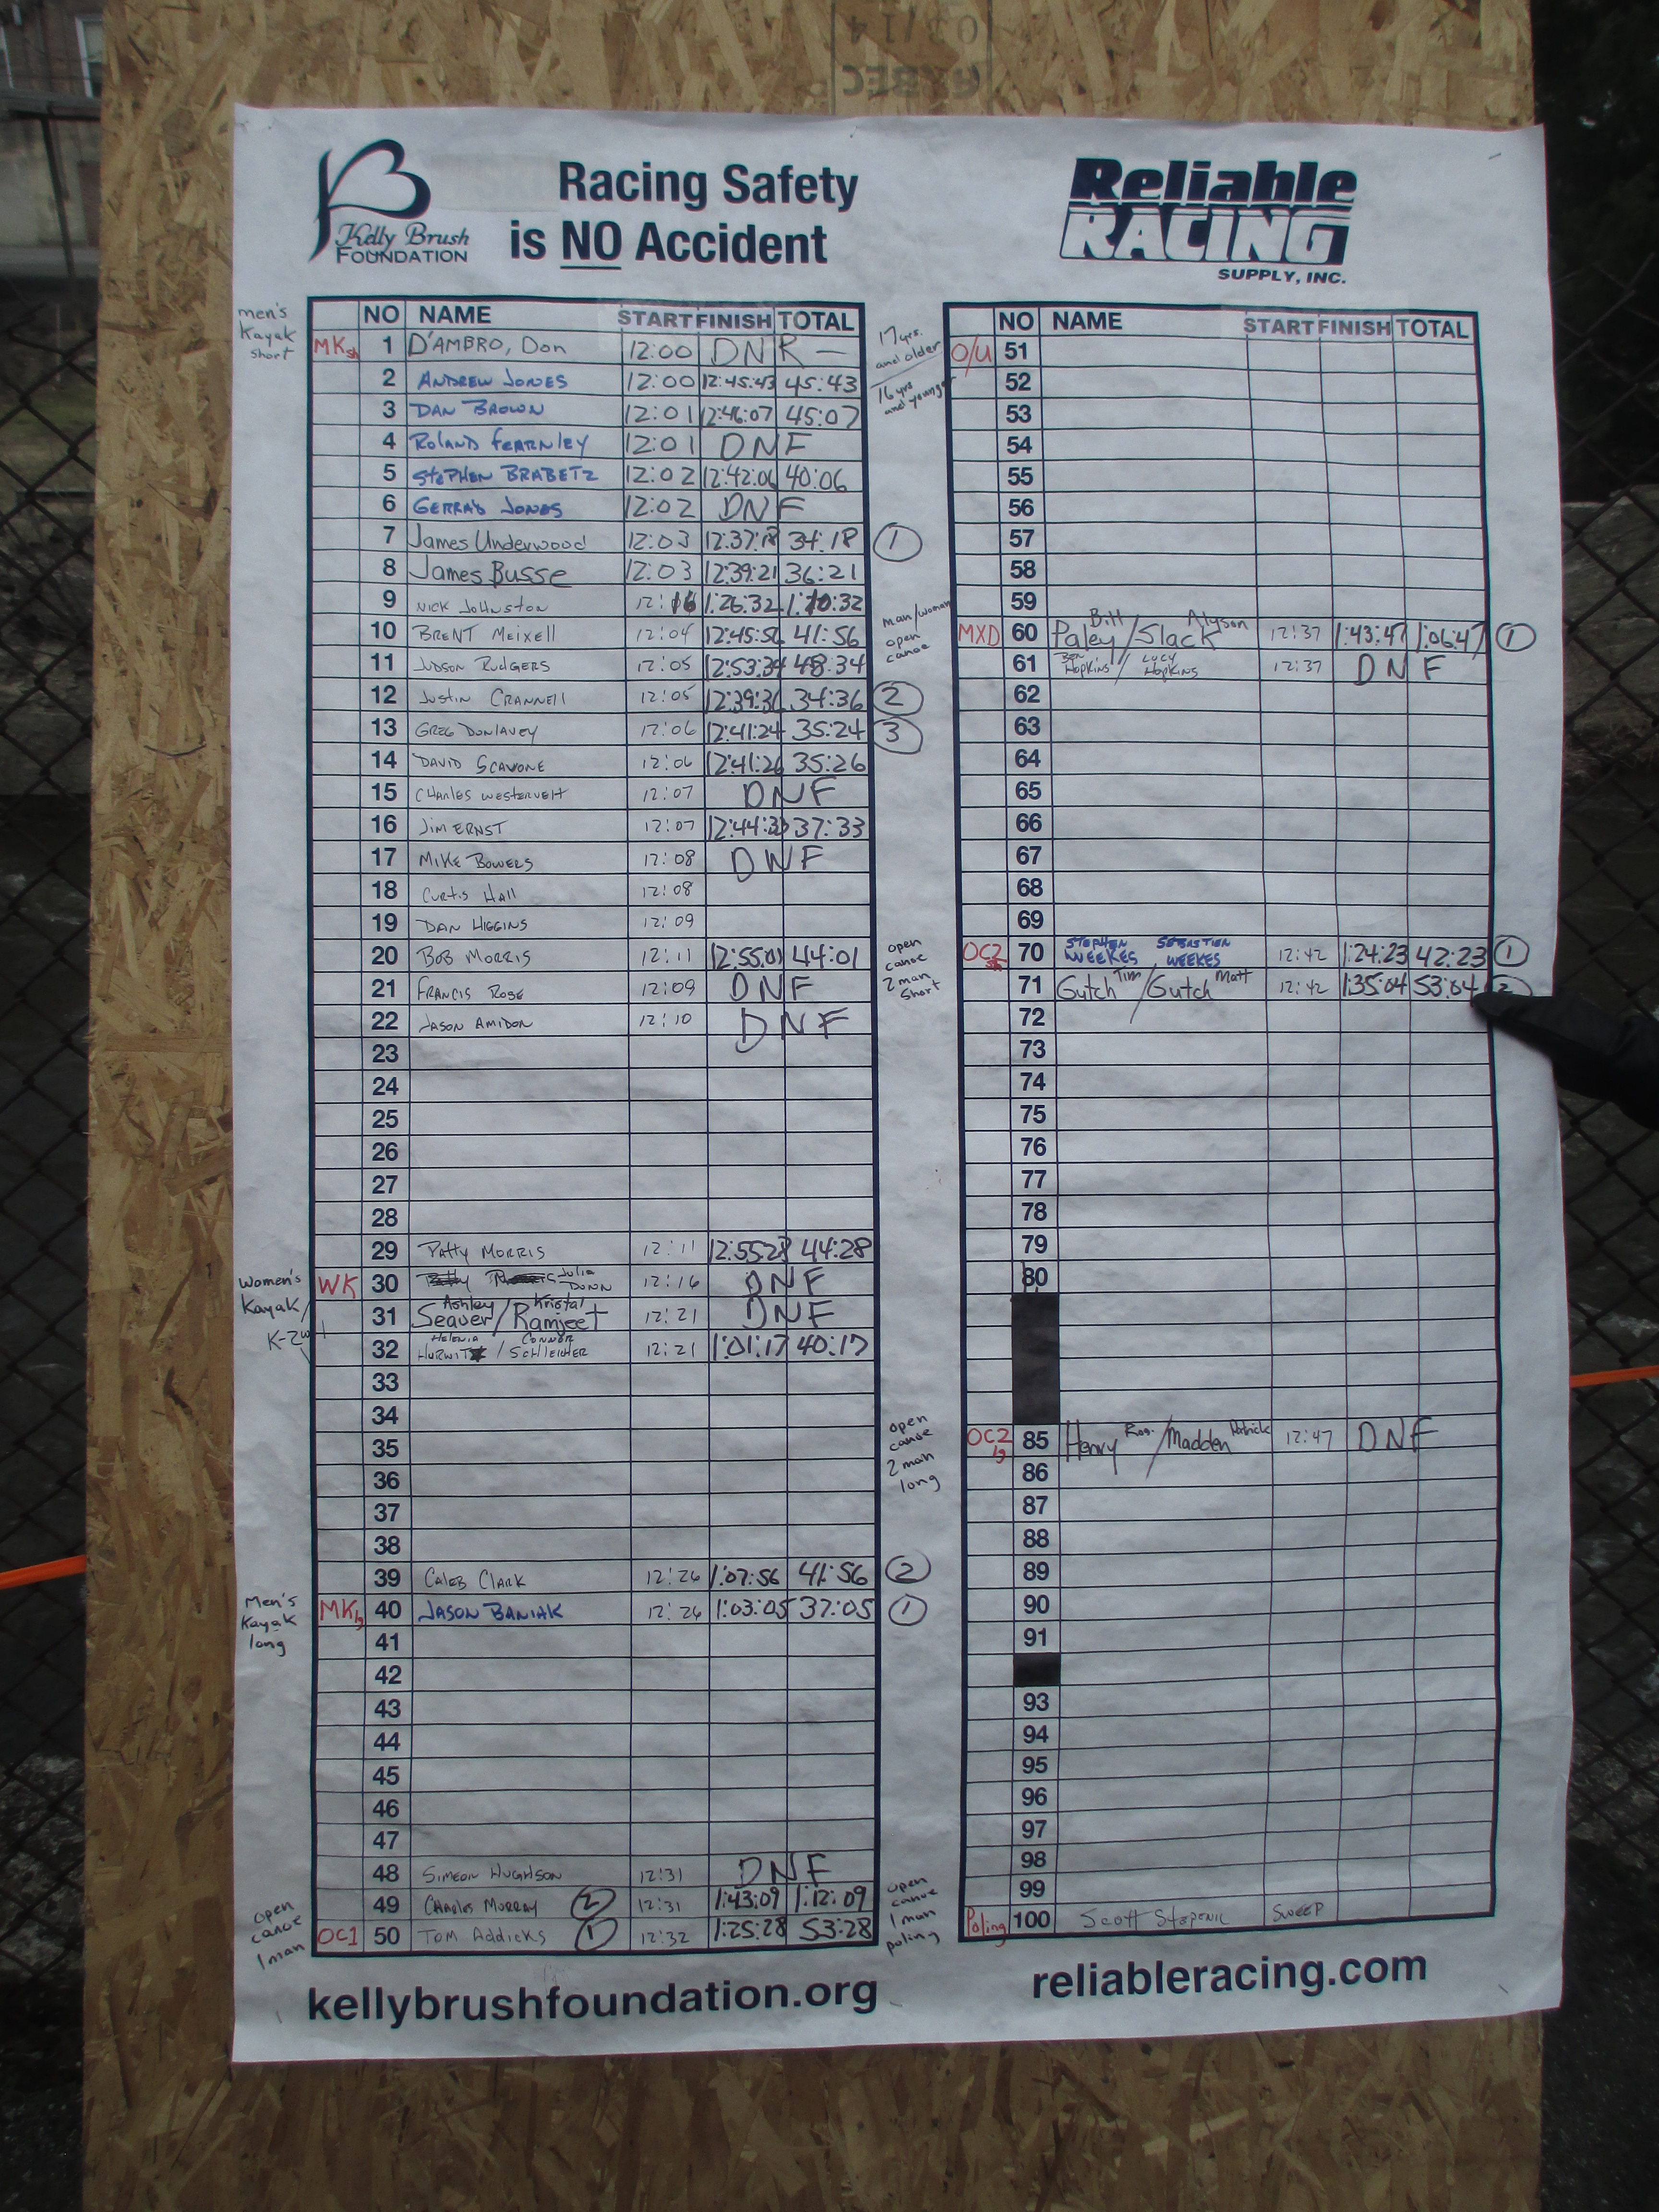 Kelly Brush
FOUNDATION
Racing Safety
is NO Accident
Reliable
RACING
SUPPLY, INC.
men's
Kayak
short
NO NAME START FINISH TOTAL
MKsh 1 D'AMBRO, Don 12:00 DNR —
2 ANDREW JONES 12:00 12:45:43 45:43
3 DAN BROWN 12:01 12:46:07 45:07
4 ROLAND FEARNLEY 12:01 DNF
5 STEPHEN BRABETZ 12:02 12:42:06 40:06
6 GERRAD JONES 12:02 DNF
7 James Underwood 12:03 12:37:18 34:18 1
8 James Busse 12:03 12:39:21 36:21
9 NICK JOHNSTON 12:16 1:26:32 1:10:32
10 BRENT MEIXELL 12:04 12:45:56 41:56
11 JUDSON RUDGERS 12:05 12:53:34 48:34
12 JUSTIN CRANNELL 12:05 12:39:36 34:36 2
13 GREG DUNLAVEY 12:06 12:41:24 35:24 3
14 DAVID SCAVONE 12:06 12:41:26 35:26
15 CHARLES WESTERVELT 12:07 DNF
16 JIM ERNST 12:07 12:44:33 37:33
17 MIKE BOWERS 12:08 DNF
18 CURTIS HALL 12:08
19 DAN HIGGINS 12:09
20 BOB MORRIS 12:11 12:55:01 44:01
21 FRANCIS ROSE 12:09 DNF
22 JASON AMIDON 12:10 DNF
23
24
25
26
27
28
29 PATTY MORRIS 12:11 12:55:28 44:28
Women's
Kayak/
K-2w
WK 30 Julia DUNN 12:16 DNF
31 Ashley Seaver/Kristal Ramjeet 12:21 DNF
32 HELENIA HURWITZ / CONNOR SCHLEICHER 12:21 1:01:17 40:17
33
34
35
36
37
38
39 CALEB CLARK 12:26 1:07:56 41:56 2
Men's
Kayak
long
MKlg 40 JASON BANIAK 12:26 1:03:05 37:05 1
41
42
43
44
45
46
47
48 SIMEON HUGHSON 12:31 DNF
49 CHARLES MURRAY 2 12:31 1:43:09 1:12:09
open
canoe
1 man
OC1 50 TOM ADDICKS 1 12:32 1:25:28 53:28
17 yrs.
and older
16 yrs
and younger
NO NAME START FINISH TOTAL
O/U 51
52
53
54
55
56
57
58
59
man/woman
open
canoe
MXD 60 Bill Paley/Alyson Slack 12:37 1:43:47 1:06:47 1
61 BEN HOPKINS / LUCY HOPKINS 12:37 DNF
62
63
64
65
66
67
68
69
open
canoe
2 man
short
OC2 sh 70 STEPHEN WEEKES SEBASTIEN WEEKES 12:42 1:24:23 42:23 1
71 Gutch Tim/Gutch Matt 12:42 1:35:04 53:04 2
72
73
74
75
76
77
78
79
80
open
canoe
2 man
long
OC2 lg 85 Henry /Madden Patrick 12:47 DNF
86
87
88
89
90
91
93
94
95
96
97
98
99
open
canoe
1 man
poling
Poling 100 Scott SWEEP
kellybrushfoundation.org
reliableracing.com